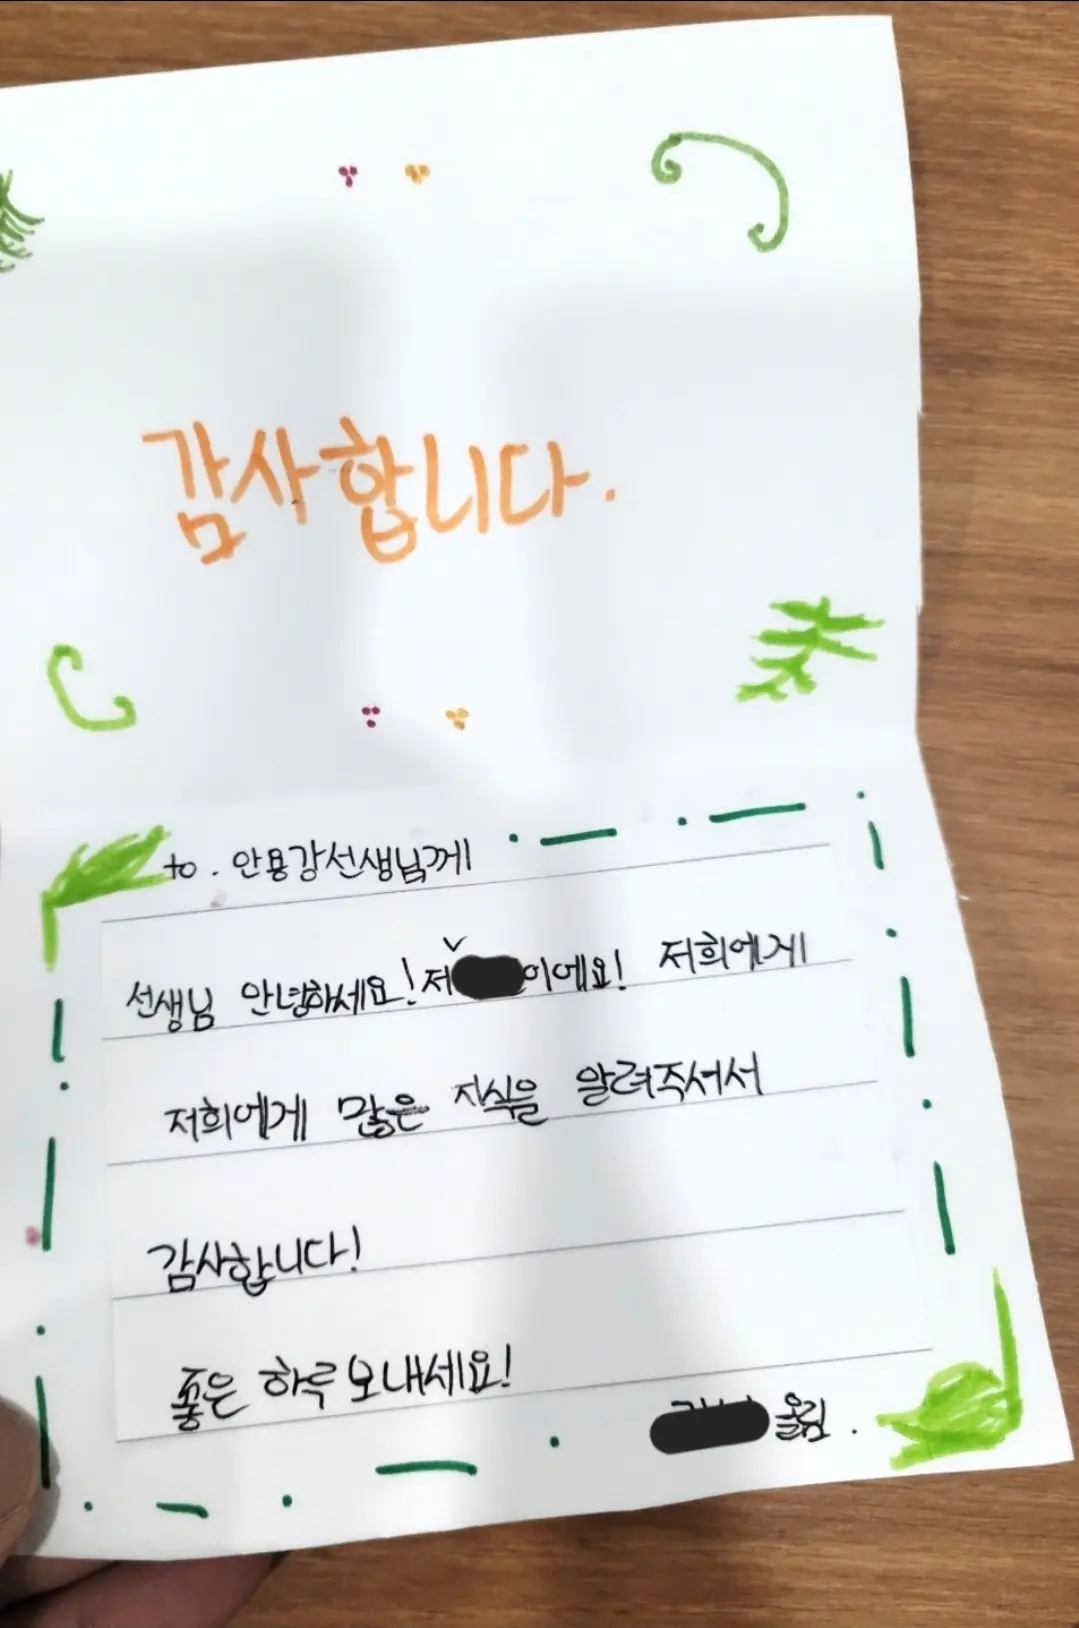 감사합니다.
to. 안용강선생님께
선생님 안녕하세요! 저 이에요! 저희에게
저희에게 많은 지식을 알려주셔서
감사합니다!
좋은 하루 보내세요!
올림.